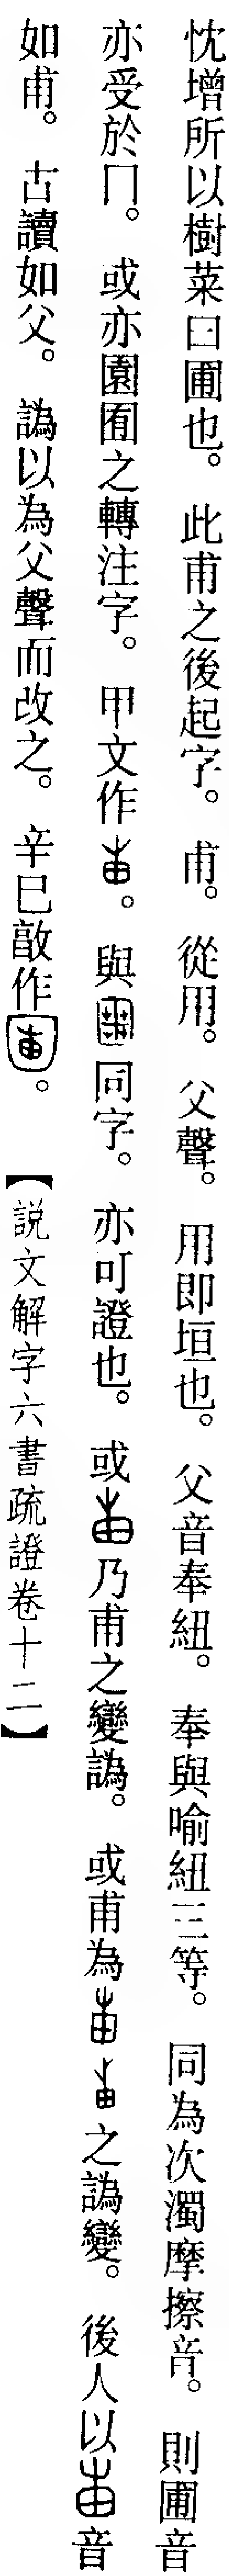 忱增所以樹菜曰圃也。此甫之後起字。甫。從用。父聲。用即垣也。父音奉紐。奉與喻紐三等。同為次濁摩擦音。則圃音
亦受於冂。或亦園囿之轉注字。甲文作。與同字。亦可證也。或乃甫之變譌。或甫為之譌變。後人以音
如甫。古讀如父。譌以為父聲而改之。辛巳敦作。【說文解字六書疏證卷十二】